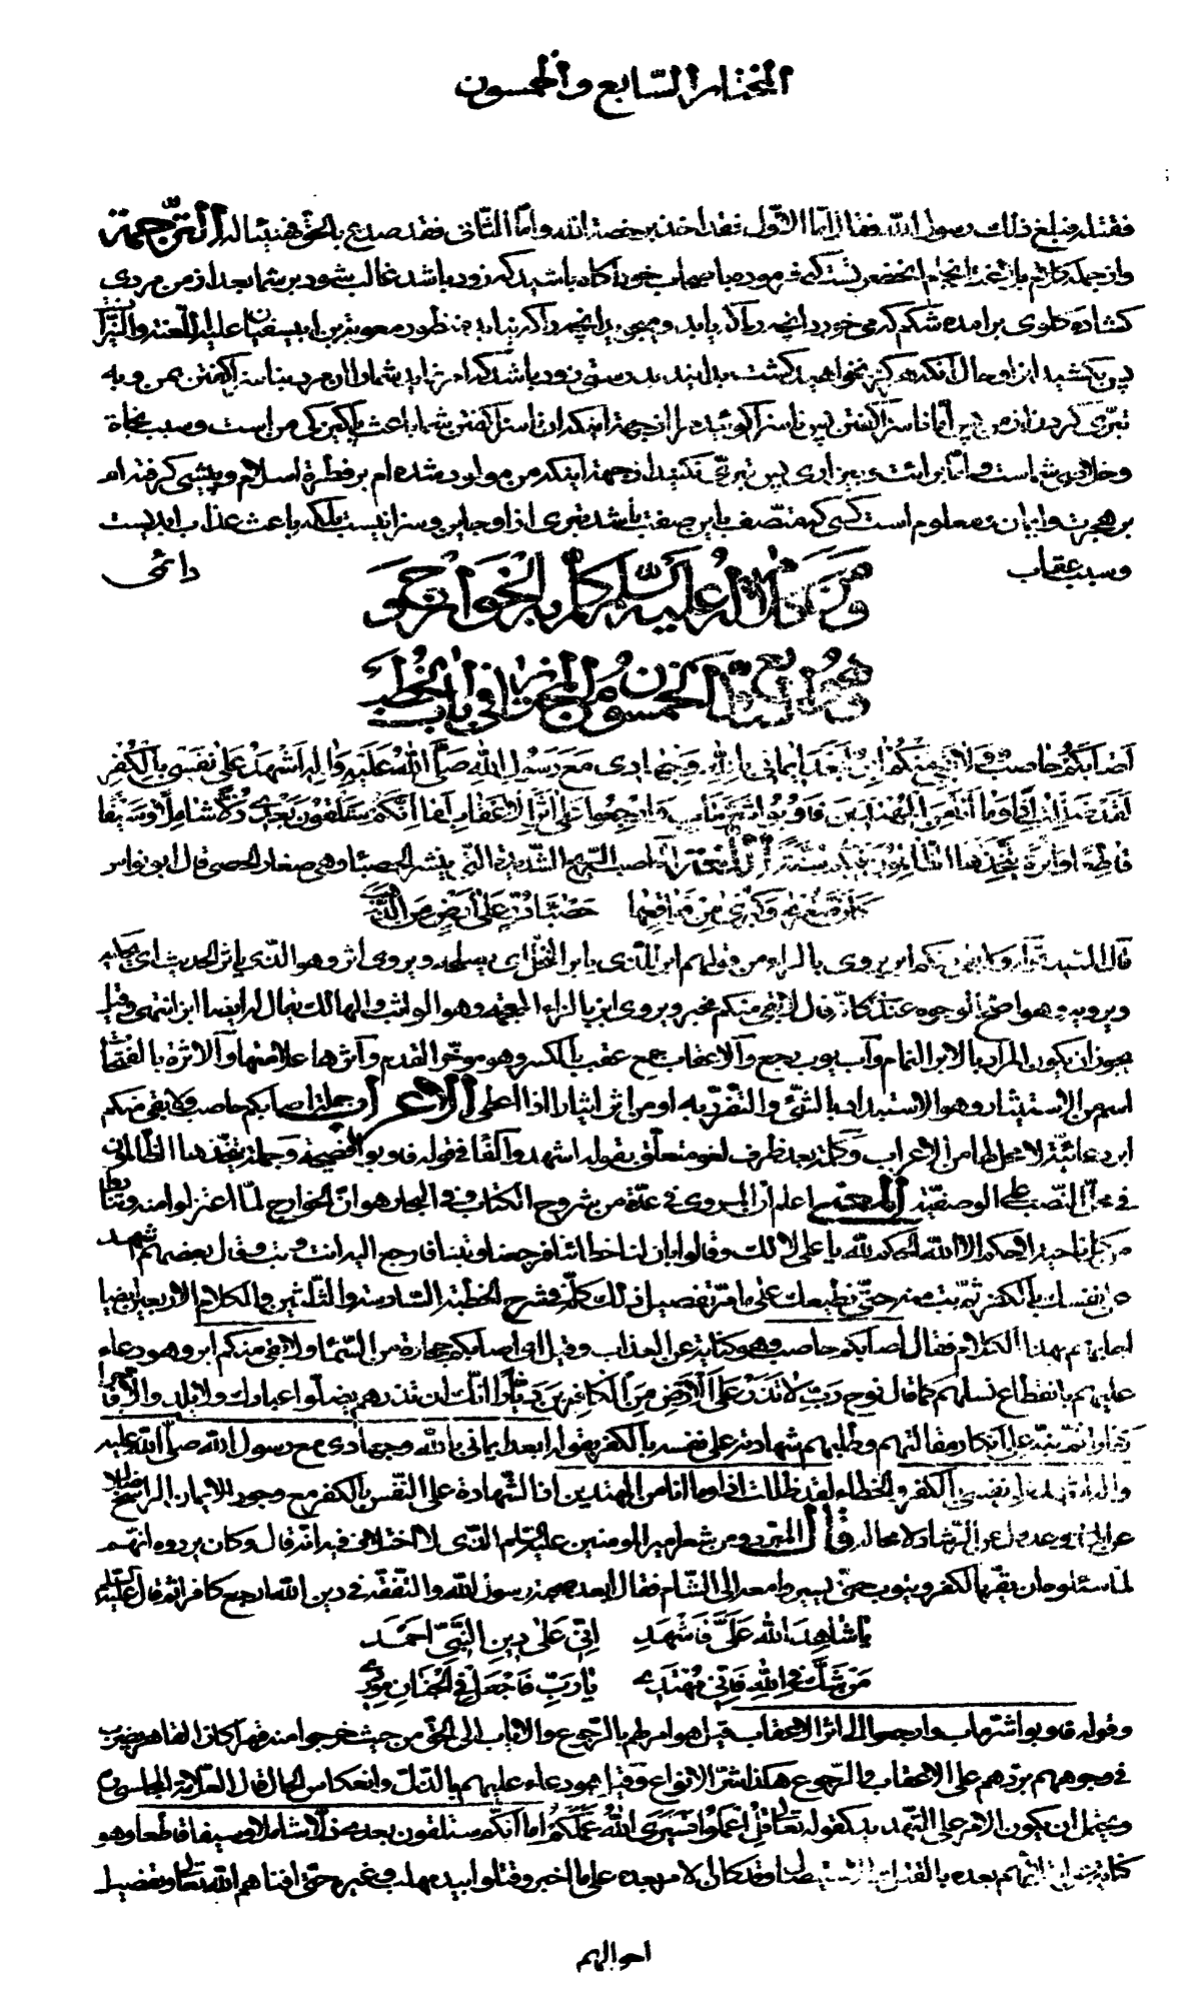 المختار السابع والخمسون
فقتله فبلغ ذلك رسول الله فقال أما الأول فقد أخذ برخصة الله وأما الثاني فقد صدع بالحق فهنيئا له الترجمة
واز جمله كلام بلاغت انجام آنحضرتست كه فرموده باصحاب خود آگاه باشيد كه زود باشد غالب شود بر شما بعد از من مردى
گشاده گلوى برآمده شكم كه مى خورد آنچه را كه يابد و مى جويد آنچه را كه نيابد منظور معوية بن ابيسفيان عليه اللعنة والنيران
پس بكشيد او را وحال آنكه هرگز نخواهيد كشت بدانيد بدرستى زود باشد كه امر نمايد شما را آن مرد بناسزا گفتن بمن و به
تبرى كردن از من پس اما ناسزا گفتن پس ناسزا گوئيد مرا از جهة اينكه آن ناسزا گفتن شما باعث پاكيزگى من است وسبب نجاة
وخلاصى شما است واما برائت وبيزارى پس تبرى نكنيد از جهة اينكه من مولود شده ام بر فطرة اسلام وپيشى گرفته ام
بر هجرت وايمان ومعلوم است كسى كه متصف باين صفت باشد تبرى از او جايز وسزا نيست بلكه باعث عذاب ابديست
وسبب عقاب دائمى
ومن كلام له عليه السلام كلم به الخوارج
وهو السابع والخمسون من المختار في باب الخطب
أَصابَكُمْ حاصِبٌ وَلا بَقِيَ مِنْكُمْ آبِرٌ أَبَعْدَ إيماني بِاللهِ وَجِهادي مَعَ رَسُولِ اللهِ صَلَّى اللهُ عَلَيْهِ وَآلِهِ أَشْهَدُ عَلى نَفْسي بِالْكُفْرِ
لَقَدْ ضَلَلْتُ إِذاً وَما أَنَا مِنَ الْمُهْتَدينَ فَأُوبُوا شَرَّ مَآبٍ وَارْجِعُوا عَلى أَثَرِ الْأَعْقابِ أَما إِنَّكُمْ سَتَلْقَوْنَ بَعْدي ذُلّاً شامِلاً وَسَيْفاً
قاطِعاً وَأَثَرَةً يَتَّخِذُهَا الظّالِمُونَ فيكُمْ سُنَّةً اللغة الحاصب الريح الشديدة التي ينشر الحصباء وهي صغار الحصى قال ابو نواس
كأن صغرى وكبرى من فواقعها حصباء در على أرض من الذهب
قال السيد ره قوله ولا بقي منكم آبر يروى بالراء من قولهم آبر للذي يأبر النخل اي يصلحه ويروى آثر وهو الذي يأثر الحديث اي يحكيه
ويرويه وهو اصح الوجوه عندي كانه قال لا بقي منكم مخبر ويروى آبز بالزاء المعجمة وهو الواثب والهالك يقال له ايضا آبز انتهى وقيل
يجوز ان يكون المراد بالآبر النمام وآب يؤب رجع والاعقاب جمع عقب بالكسر وهو مؤخر القدم وأثرها علامتها والاثرة بالفتحات
اسم من الاستيثار وهو الاستبداد بالشئ والتفرد به او من آثر ايثارا اذا اعطى الاعراب جملة اصابكم حاصب ولا بقي منكم
آبر دعائية لا محل لها من الاعراب وكلمة بعد ظرف لغو متعلق بقوله اشهد والفا في قوله فاوبوا فصيحة وجملة يتخذها الظالمون
في محل النصب على الوصفية المعنى اعلم ان المروى في عدة من شروح الكتاب وفي البحار هو ان الخوارج لما اعتزلوا منه وتنادوا
من كل ناحية لا حكم الا الله الحكم لله يا علي لا لك وقالوا بان لنا خطاؤنا فرجعنا وتبنا فارجع اليه انت وتب وقال بعضهم اشهد
على نفسك بالكفر ثم تب منه حتى نطيعك على ما مر تفصيل ذلك كله في شرح الخطبة السادسة والثلثين والكلام الاربعين ايضا
اجابهم بهذا الكلام فقال اصابكم حاصب وهو كناية عن العذاب وقيل اي اصابكم حجارة من السماء ولا بقي منكم آبر وهو دعاء
عليهم بانقطاع نسلهم كما قال نوح رب لا تذر على الارض من الكافرين ديارا انك ان تذرهم يضلوا عبادك ولا يلدوا الا فاجرا
كفارا ثم نبه على انكار مقالتهم وطلبهم شهادته على نفسه بالكفر بقوله ابعد ايماني بالله وجهادي مع رسول الله صلى الله عليه
وآله اشهد على نفسي بالكفر والخطاء لقد ظللت اذا وما انا من المهتدين اذ الشهادة على النفس بالكفر مع وجود الايمان الراسخ ضلال
عن الحق وعدول عن الرشاد لا محالة قال المبرد ومن شعر امير المؤمنين عليه السلم الذي لا اختلاف فيه انه قال وكان يردده انهم
لما سئلوه ان يقر بالكفر ويتوب حتى يسيروا معه الى الشام فقال ابعد صحبة رسول الله والتفقه في دين الله ارجع كافرا ثم قال عليه السلم
يا شاهِدَ اللهِ عَلَيَّ فَاشْهَدِ إنّي عَلى دينِ النَّبِيِّ أَحْمَدِ
مَنْ شَكَّ في اللهِ فَإِنّي مُهْتَدي يا رَبِّ فَاجْعَلْ في الْجِنانِ مَوْرِدي
وقوله فاوبوا شر مآب وارجعوا الى اثر الاعقاب قيل هو امر لهم بالرجوع والاياب الى الحق من حيث خرجوا منه قهرا كان القاهر يضرب
في وجوههم يردهم على الاعقاب والرجوع هكذا شر الانواع وقيل هو دعاء عليهم بالذل وانعكاس الحال قال العلامة المجلسي ره
ويحتمل ان يكون الامر على التهديد كقوله تعالى قل اعملوا فسيرى الله عملكم اما انكم ستلقون بعدي ذلا شاملا وسيفا قاطعا وهو
كناية عن ابتلائهم بعده بالقتل والاستيصال وقد كان الامر بعده على ما اخبر وقتلوا بيد مهلب وغيره حتى افناهم الله تعالى وتفصيل
احوالهم